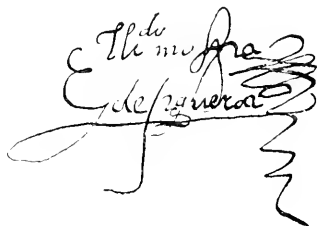 El lido mosqra
de figueroa